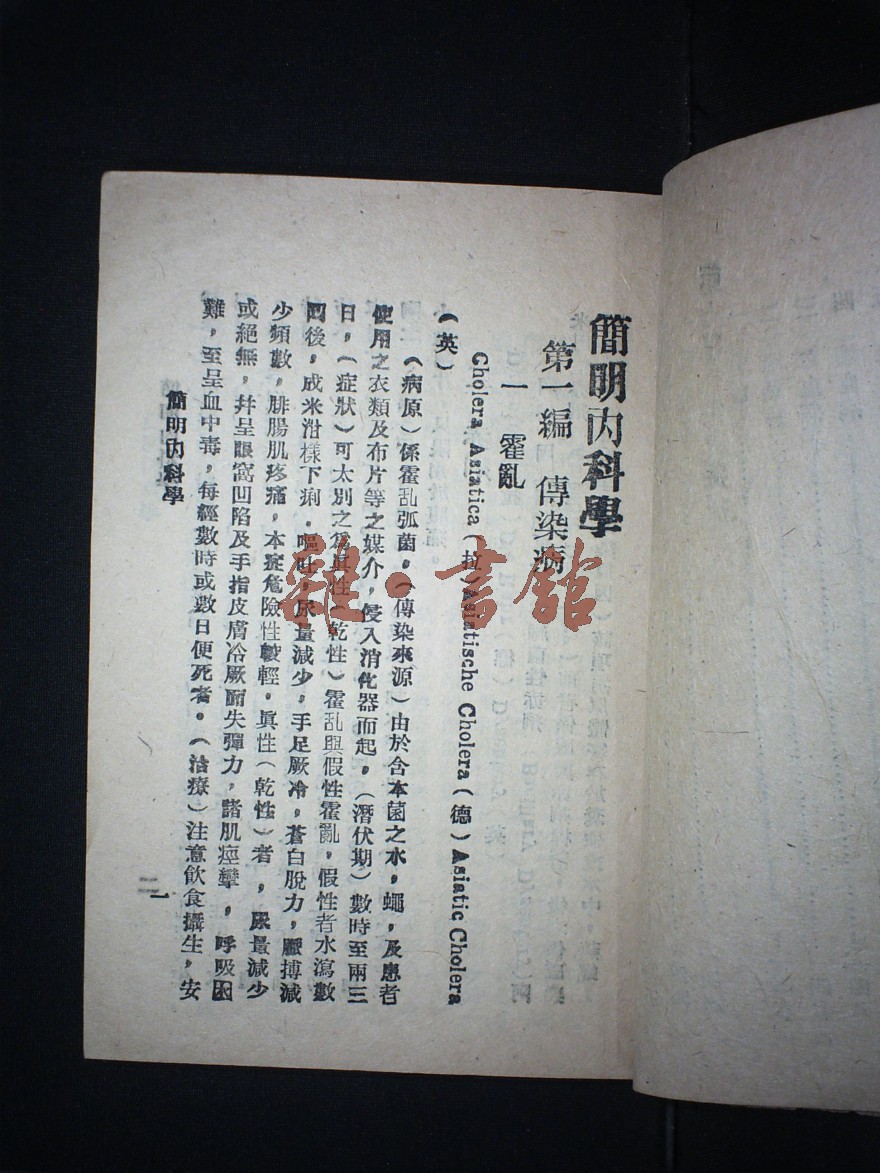 簡明內科學
第一編 傳染病
一 霍亂
Cholera Asiatica(拉)Asiatische Cholera(德)Asiatic Cholera
(英)
(病原)係霍乱弧菌,(傳染來源)由於含本菌之水,蠅,及患者
使用之衣類及布片等之媒介,侵入消化器而起,(潛伏期)數時至兩三
日,(症狀)可太別之為眞性(乾性)霍乱與假性霍亂,假性者水瀉數
四後,成米泔樣下痢.嘔吐,尿量減少,手足厥冷,蒼白脫力,脈搏減
少頻數,腓腸肌疼痛,本症危險性較輕.眞性(乾性)者,尿量減少
或絕無,幷呈眼窩凹陷及手指皮膚冷厥而失彈力,諸肌痙攣,呼吸困
難,至呈血中毒,每經數時或數日便死者.(治療)注意飲食攝生,安
簡明內科學
一
雜·書館